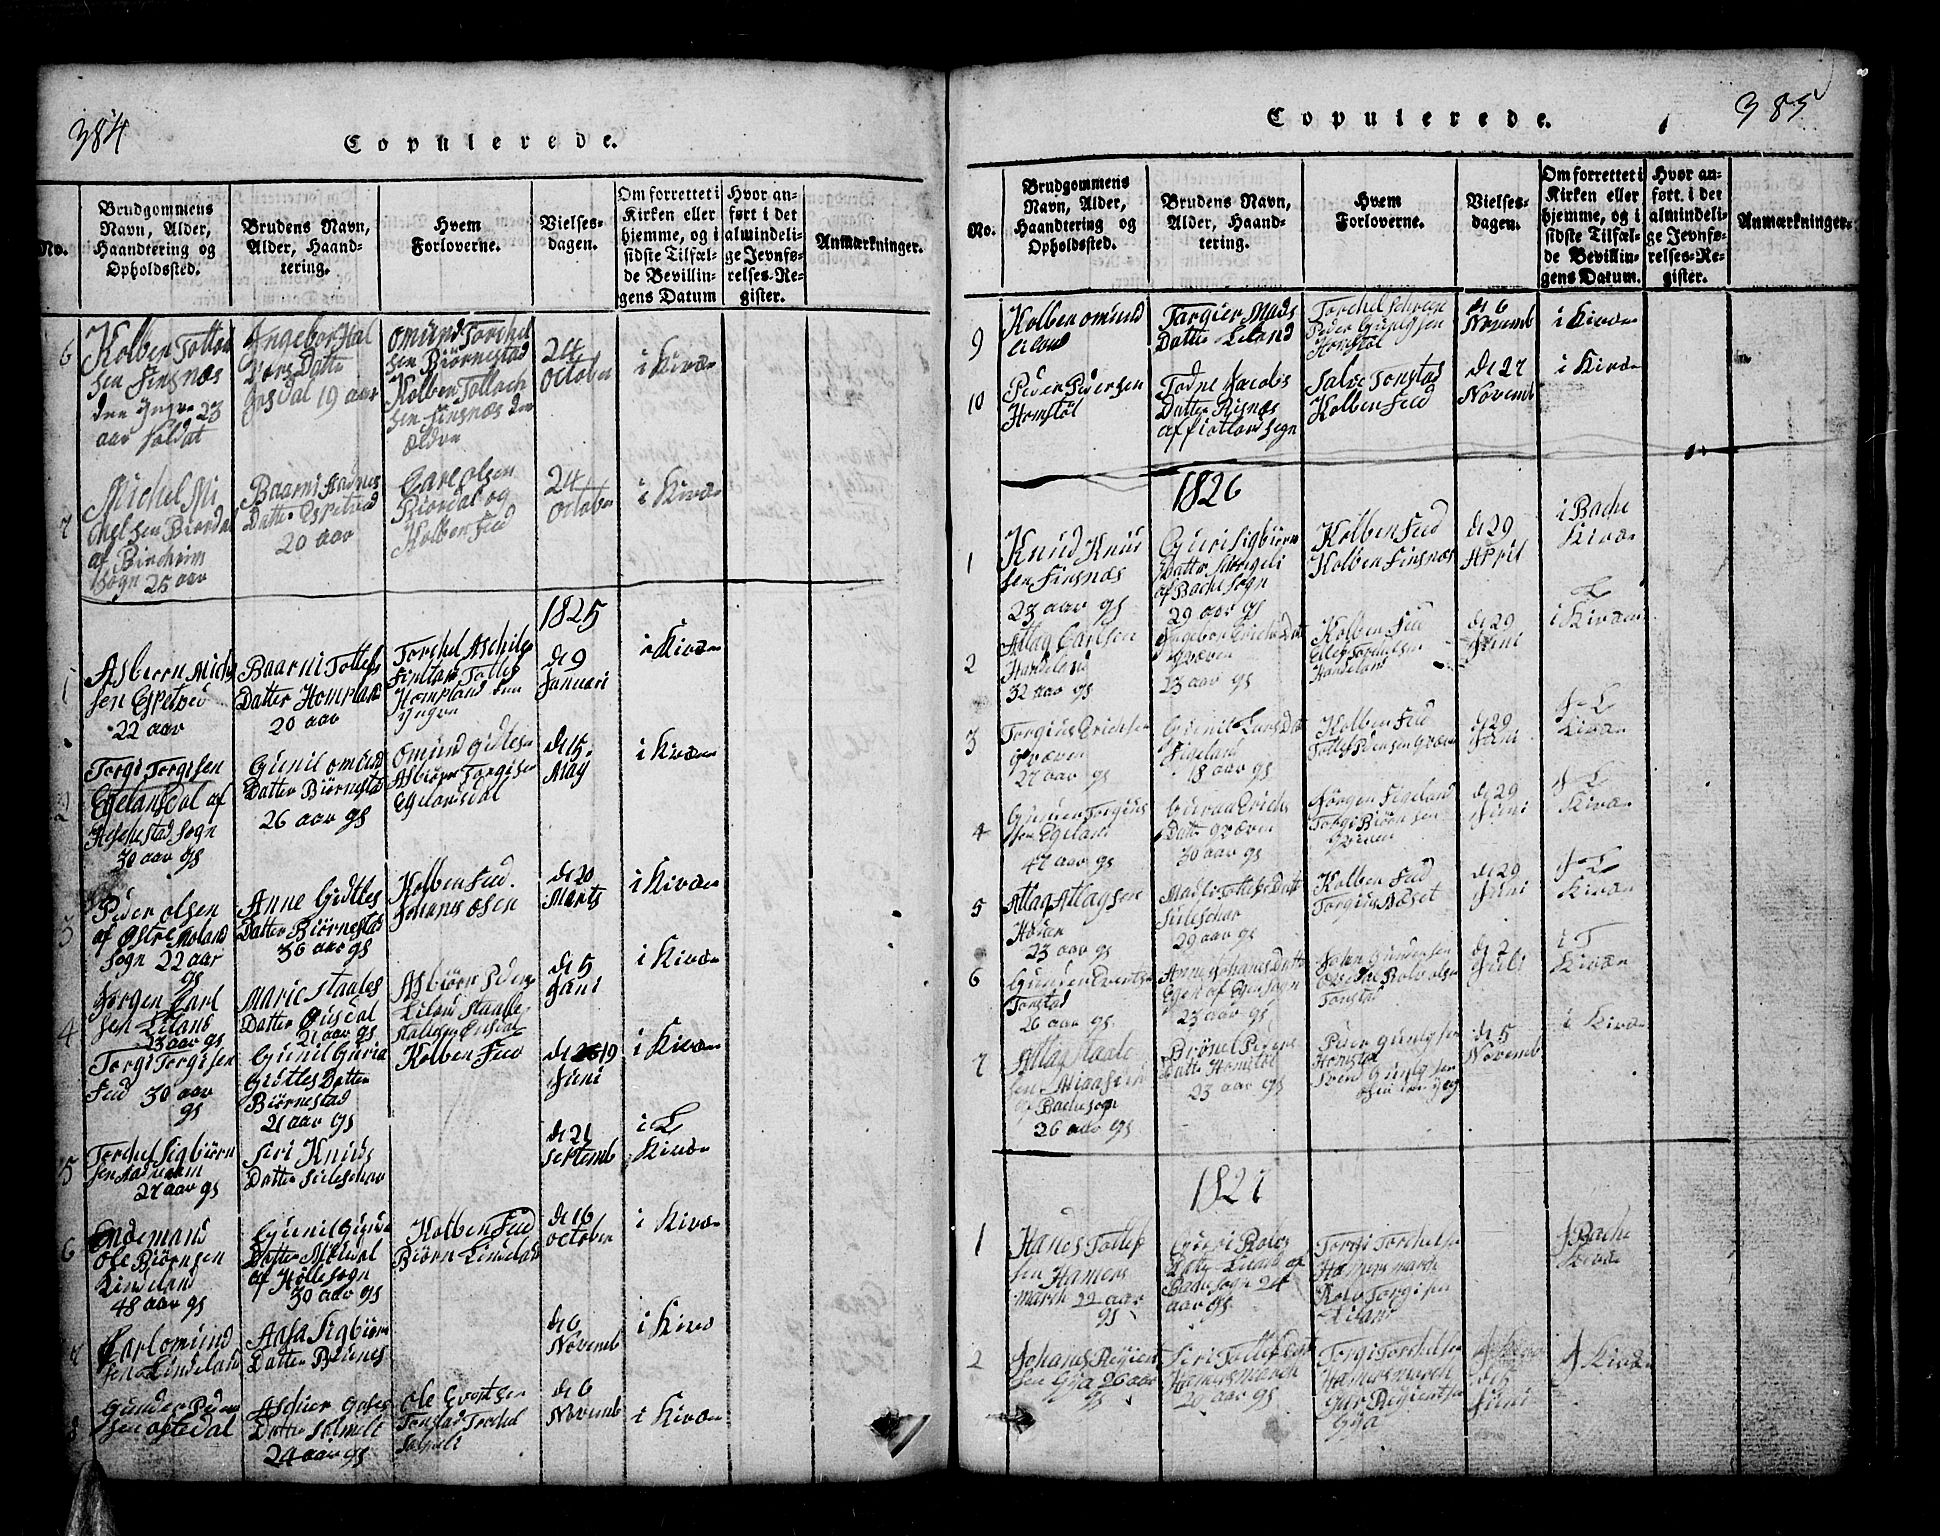 384
Copulerede.
No.
Brudgommens
Navn, Alder,
Haandtering og
Opholdssted.
Brudens Navn,
Alder, Haand-
tering.
Hvem
Forloverne.
Vielses-
dagen.
Om forrettet i
Kirken eller
hjemme, og i
sidste Tilfæl-
de Bevillin-
gens Datum
Hvor an-
ført i det
almindeli-
ge Jevnfø-
relses-Re-
gister.
Anmærkninger.
6
Kolben Tollac
sen Finsnæs
den Yngre 23
aar Soldat
Ingebor Hal
vors Datter
Gosdal 19 aar
Omund Torchel
sen Biørnestad
Kolben Tollach
sen Finsnæs den
Ældre
24
October
i Kirken
7
Michel Mi
chelsen Biordal
af Birchrim
Sogn 25 aar
Baarni Aadnes
Datter Espetved
20 aar
Carl Olsen
Biordal og
Kolben Fed
24
October
i Kirken
1825
1
Asbiorn Mich
sen Espetved
22 aar
Baarni Tollefs
Datter Hompland
20 aar
Torchel Aschils
Tollef
Hompland den
Yngre
de 9
Januari
i Kirken
2
Torgi Torgisen
Egelandsdal af
Helleestad Sogn
30 aar gs
Gunil Omund
Datter Biørnestad
26 aar gs
Omund Gidtles
Asbiørn Torgisen
Egelandsdal
de 15
May
i Kirken
3
Peder Olsen
af Østre Moland
Sogn 22 aar
gs
Anne Gidtles
Datter Biørnestad
30 aar gs
Kolben Fed
Johanes Osen
de 20
Marts
i Kirken
4
Jørgen Carl
sen Eiland
23 aar gs
Marie Staales
Datter Ousdal
21 aar gs
Asbiørn Peder
Eiland Staalle
Ousdal
de 5
Juni
i Kirken
Torgi Torgisen
Fed 30 aar
gs
Gunil Guria
Gidtles Datter
Biørnestad
21 aar gs
Kolben Fed
de 19
Juni
i Kirken
5
Torchel Sigbiørn
sen
27 aar gs
Siri Knuds
Datter Sueleschar
de 21
Septemb
i L
Kirken
6
Enkemand
Ole Biørnsen
Lindeland
48 aar gs
Gunil Gunde
Datter Mösdal
af Hølle Sogn
30 aar gs
Kolben Fed
Biørn Lindeland
de 16
October
i Kirken
7
Carl Omund
sen Lindeland
Aasa Sigbiørn
Datter Rusnes
de 6
Novemb
i Kirke
8
Gunder Peder
sen Østedal
Aschier Goles
Datter Solmelt
24 aar gs
Ole Evertsen
Tonstad Torchel
Solmelt
de 6
Novemb
i Kirken
385
Copulerede.
No.
Brudgommens
Navn, Alder,
Haandtering og
Opholdssted.
Brudens Navn,
Alder, Haand-
tering.
Hvem
Forloverne.
Vielses-
dagen.
Om forrettet i
Kirken eller
hjemme, og i
sidste Tilfæl-
de Bevillin-
gens Datum.
Hvor an-
ført i det
almindeli-
ge Jevnfø-
relses-Re-
gister.
Anmærkninger.
9
Kolben Omund
Eiland
Targier Mads
Datter Eiland
Torchel Schreae
Peder Gunlysen
Homstøl
de 6
Novemb
i Kirken
10
Peder Pedersen
Homstøl
Todne Jacobs
Datter Risnæs
af Fiotland Sogn
Salve Tonstad
Kolben Fed
de 27
Novemb
i Kirken
1826
1
Knud Knud
sen Finsnæs
23 aar gs
Guri Sigbiørn
Datter
af Bache Sogn
29 aar gs
Kolben Fed
Kolben Finsnæs
de 29
April
i Bache
Kirke
2
Attag Carlsen
Handeland
32 aar gs
Ingebor Erichs Datt
Græven
23 aar gs
Kolben Fed
Ellef Torchelsen
Handeland
de 29
Juni
L
i Kirken
3
Torgius Erichsen
Græven
27 aar gs
Gunil Lars Datt
Figeland
18 aar gs
Kolben Fed
Græven
de 29
Juni
L
Kirken
4
Gunder Torgius
sen Egeland
47 aar gs
Guran Erichs
Datter Græven
30 aar gs
Jørgen Figeland
Torgi Biørnsen
Græven
de 29
Juni
L
Kirken
5
Attag Attagsen
23 aar gs
Madli Tollefs Datt
Sueleschar
29 aar gs
Kolben Fed
Torgius Røset
de 29
Juni
L
Kirken
6
Gunder Evertsen
Tonstad
26 aar gs
Anne Johanes Datt
Egen af Egen Sogn
23 aar gs
John Gundersen
Rolv Olsen
Tonstad
de 2
Juli
i T
Kirken
7
Attag Staale
sen
af Bache Sogn
26 aar gs
Brønel Peders
Datter Homstøl
23 aar gs
Peder Gunlysen
Homstøl
Sven Gunlysen
de 5
Novemb
i Kirken
1827
1
Hanes Tollef
sen Hamers
march 22 aar
gs
Guri Rolvs
Datter af
Bache Sogn 24
aar gs
Torgi Torchelsen
Hamersmarch
Rolv Torgisen
Eiland
Bache
Kirke
2
Johanes Reyier
sen Gya 26 aar
gs
Siri Tollefs Datt
Hamersmarch
20 aar gs
Torgi Torchelsen
Hamersmarch
Reyiertsen
Gya
Juni
i Kirken